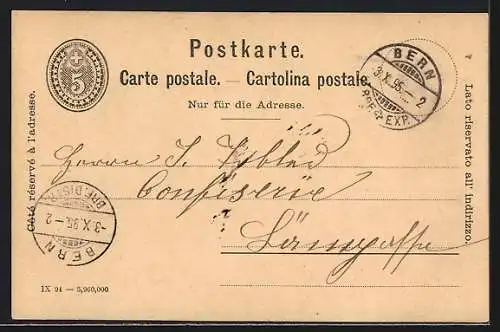 Postkarte.
Carte postale. — Cartolina postale.
Nur für die Adresse.
5
BERN
3.X.95.–2
BRF. EXP.
Côté réservé à l'adresse.
Lato riservato all' indirizzo.
Herrn J.
Confiserie
BRF. DISTR.
-3.X.95.–2
BERN
IX 94 — 5,960,000